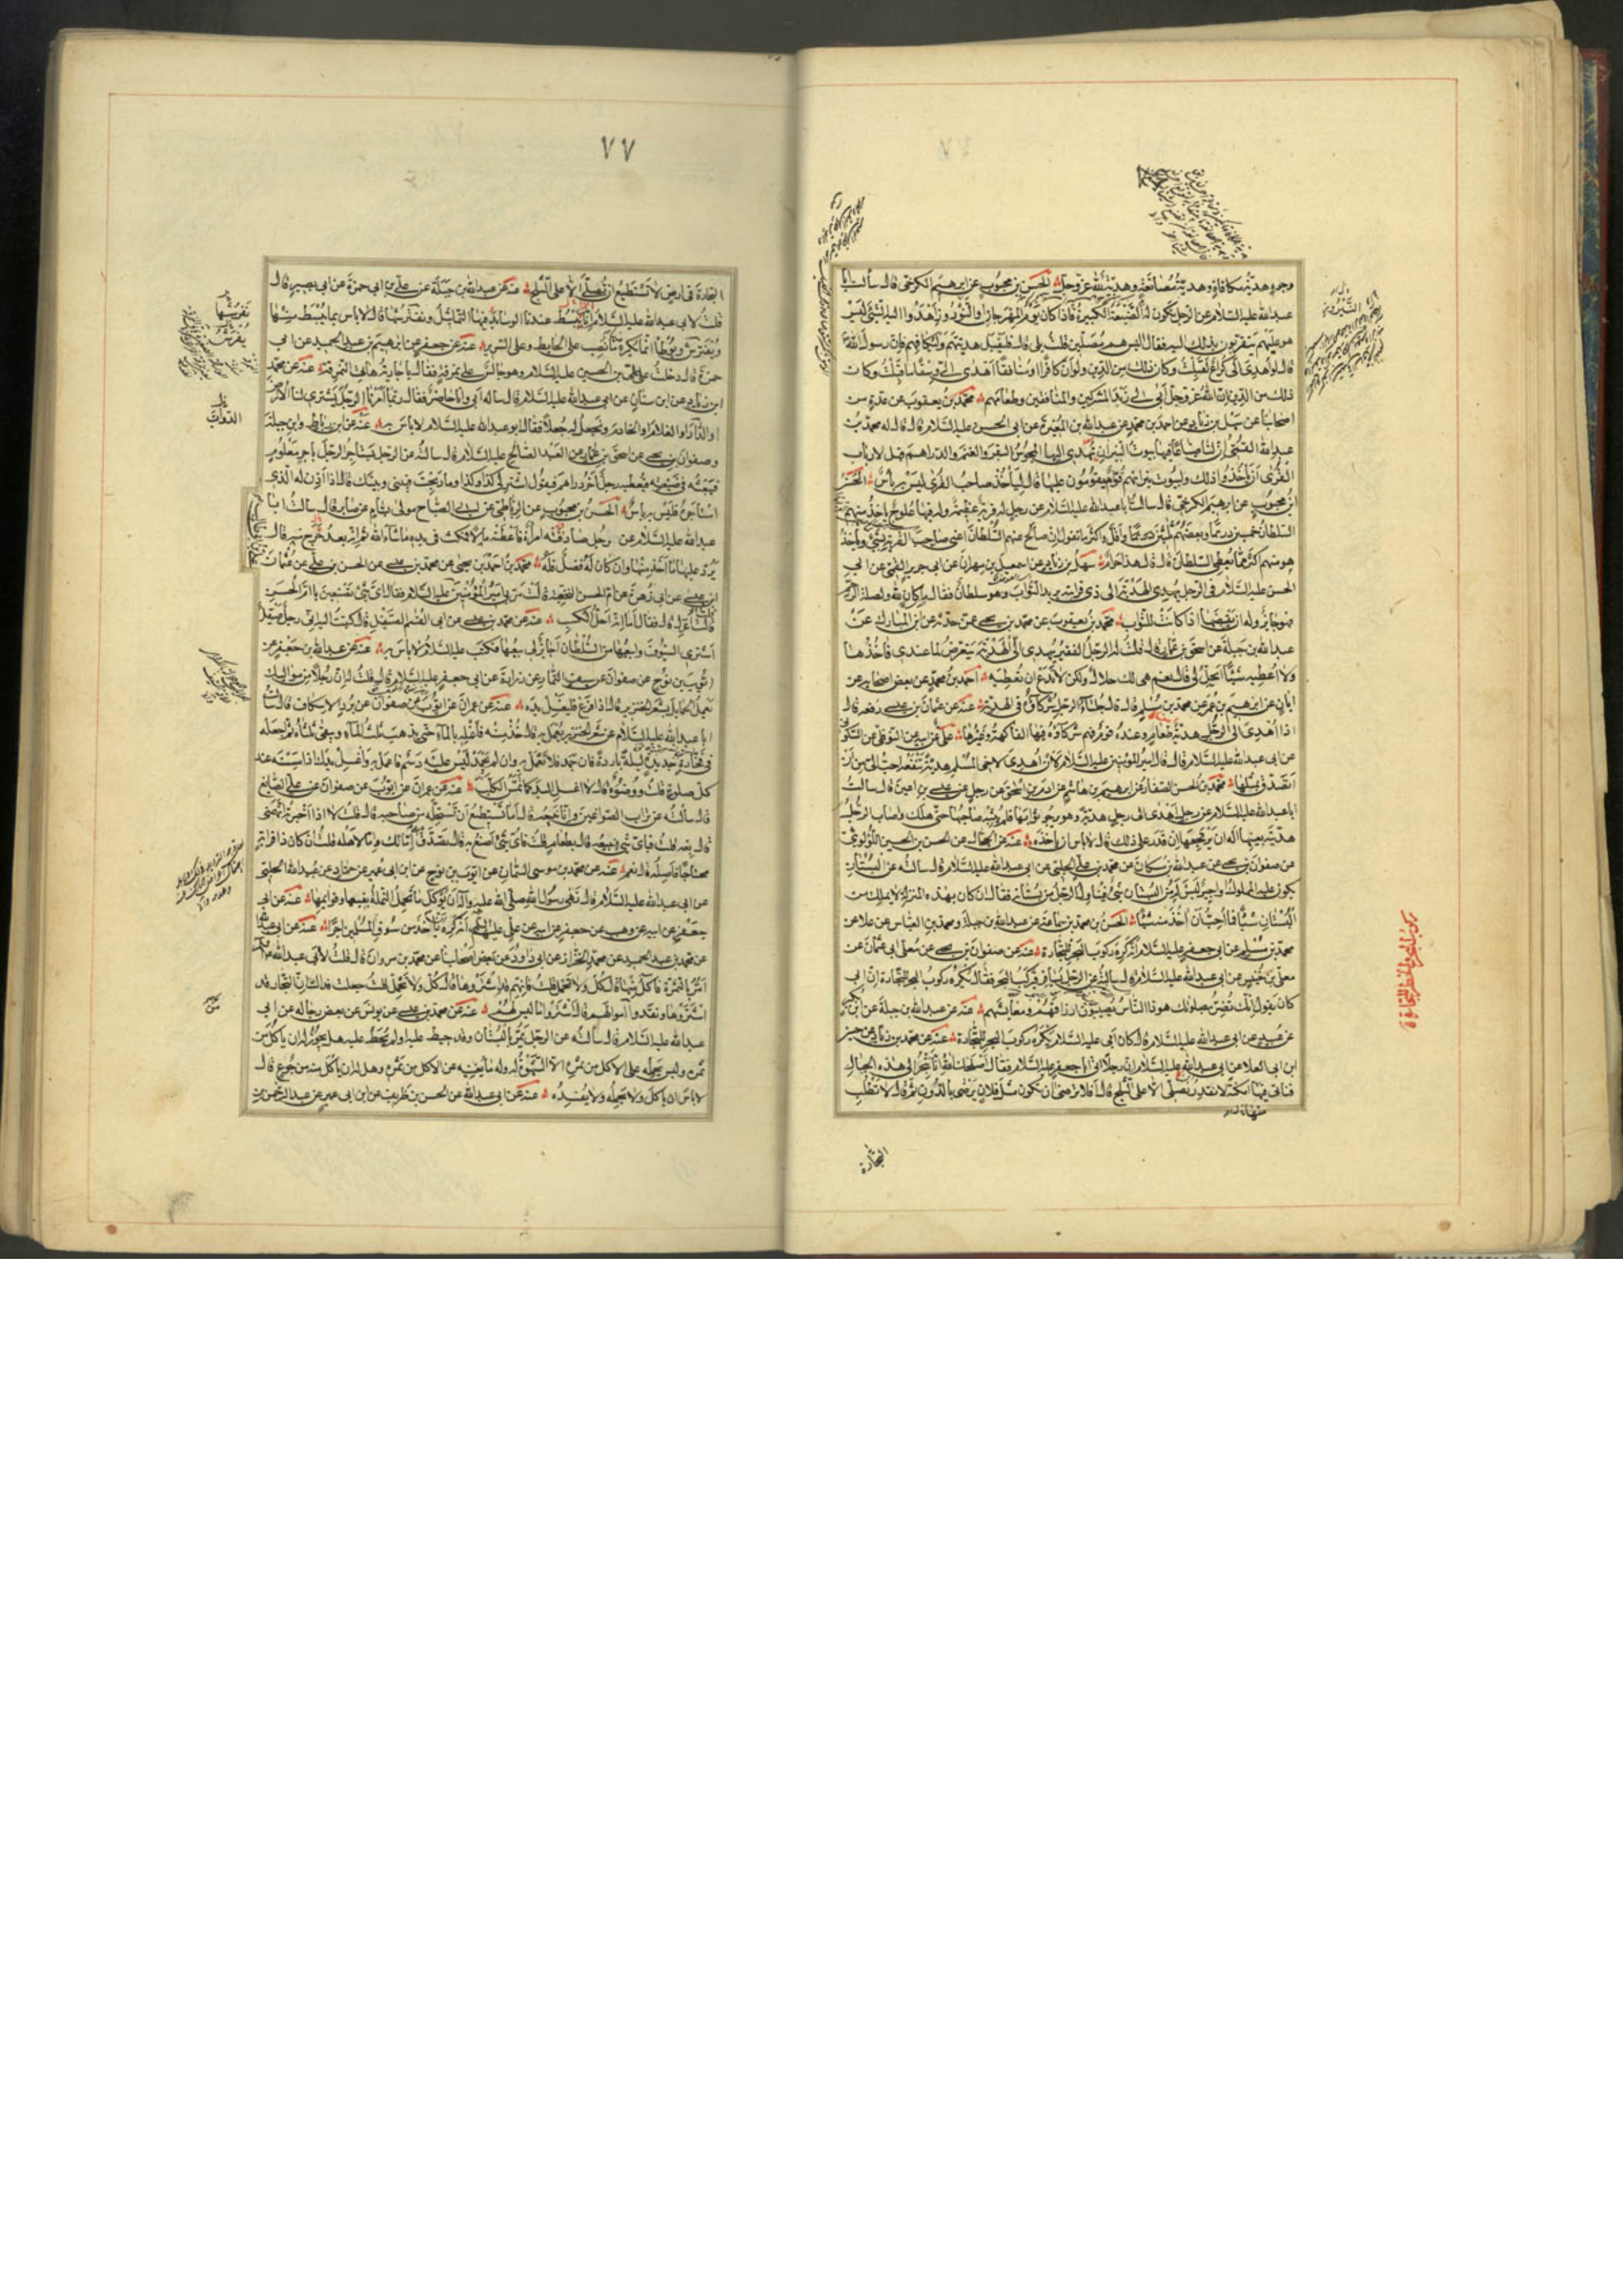 وجوه هدية مكافاة وهدية مصانعة وهدية لله عز وجل الحسن بن محبوب عن ابرهيم الكرخي قال سألت ابا
عبد الله عليه السلام عن الرجل يكون له الضيعة الكبيرة فاذا كان يوم المهرجان او النيروز اهدوا اليه الشئ ليس
هو عليهم يتقربون بذلك اليه فقال اليس هم مصلين قلت بلى قال فليقبل هديتهم وليكافهم فان رسول الله
قال لو اهدى الى كراع لقبلت وكان ذلك من الدين ولو ان كافرا او منافقا اهدى الى وسقا ما قبلت وكان
ذلك من الدين ان الله عز وجل ابى لى زبد المشركين والمنافقين وطعامهم محمد بن يعقوب عن عدة من
اصحابنا عن سهل بن زياد عن احمد بن محمد عن عبد الله بن المغيرة عن ابى الحسن عليه السلام قال قال له محمد بن
عبد الله القمى ان لنا ضياعا فيها بيوت النيران تهدى اليها المجوس البقر والغنم والدراهم فهل لارباب
القرى ان ياخذوا ذلك ولبيوت نيرانهم قوام يقومون عليها قال لياخذ صاحب القرى ليس به باس الحسن
ابن محبوب عن ابرهيم الكرخى قال سالت ابا عبد الله عليه السلام عن رجل له قرية عظيمة وله فيها علوج ياخذ منهم
السلطان خمسين درهما وبعضهم ثلثين درهما واقل واكثر ما تقول ان صالح عنهم السلطان اعنى صاحب القرية بشئ وياخذ
هو منهم اكثر مما يعطى السلطان قال قال هذا حرام سهل بن زياد عن اسمعيل بن مهران عن ابى جرير القمى عن ابى
الحسن عليه السلام فى الرجل يهدى الهدية الى ذى قرابته يريد الثواب وهو سلطان فقال ما كان لله ولصلة الرحم
فهو جايز وله ان يقبضها اذا كانت للثواب محمد بن يعقوب عن محمد بن يحيى عمن حدثه عن ابن المبارك عن
عبد الله بن جبلة عن اسحق بن عمار قال قلت له الرجل الفقير يهدى الى الهدية يتعرض لما عندى فاخذها
ولا اعطيه شيئا ايحل لى قال نعم هى لك حلال ولكن لا تدع ان تعطيه احمد بن محمد عن بعض اصحابه عن
ابان عن ابرهيم بن عمر عن محمد بن مسلم قال قال جلساء الرجل شركاؤه فى الهدية عنه عن عثمان بن عيسى رفعه قال
اذا اهدى الى الرجل هدية طعام وعنده قوم فهم شركاؤه فيها الفاكهة وغيرها على عن ابيه عن النوفلى عن السكونى
عن ابى عبد الله عليه السلام قال قال امير المؤمنين عليه السلام لان اهدى لاخى المسلم هدية تنفعه احب الى من ان
اتصدق بمثلها محمد بن الحسن الصفار عن ابرهيم بن هاشم عن ادريس بن اسحق عن رجل عن عيسى بن اعين قال سالت
ابا عبد الله عليه السلام عن رجل اهدى الى رجل هدية وهو يرجو ثوابها فلم يثبه صاحبها حتى هلك واصاب الرجل
هديته بعينها اله ان يرتجعها ان قدر على ذلك قال لا باس ان ياخذه عنه عن الحسن بن الحسين اللؤلوئى
عن صفوان بن يحيى عن عبد الله بن مسكان عن محمد بن على الحلبى عن ابى عبد الله عليه السلام قال سالته عن البستان
يكون عليه المملوك او اجير ليس له من البستان شئ فيتناول الرجل من بستانه فقال ان كان بهذه المنزلة لا يملك من
البستان شيئا فما احب ان اخذ منه شيئا الحسن بن محمد بن سماعة عن عبد الله بن جبلة ومحمد بن العباس عن علا عن
محمد بن مسلم عن ابى جعفر عليه السلام انه كره ركوب البحر للتجارة عنه عن صفوان بن يحيى عن معلى ابى عثمان عن
معلى بن خنيس عن ابى عبد الله عليه السلام قال سالته عن الرجل يسافر فيركب البحر فقال يكره ركوب البحر للتجارة ان ابى
كان يقول انك تضر بصلوتك هو ذا الناس يصيبون ارزاقهم ومعايشهم عنه عن عبد الله بن جبلة عن ابن بكير
عن عبيد عن ابى عبد الله عليه السلام قال كان ابى عليه السلام يكره ركوب البحر للتجارة عنه عن محمد بن زياد عن حسين
ابن ابى العلا عن ابى عبد الله عليه السلام ان رجلا اتى ابا جعفر عليه السلام فقال اصلحك الله انا نتجر الى هذه الجبال
فناتى فيها امكنة لا نقدر نصلى الا على الثلج قال افلا ترضى ان تكون مثل فلان يرضى بالدون ثم قال لا تطلب
التجارة
ركوب البحر والخطر للتجارة
٧٧
التجارة فى ارض لا تستطيع ان تصلى الا على الثلج عنه عن عبد الله بن جبلة عن على بن ابى حمزة عن ابى بصير قال
قلت لابى عبد الله عليه السلام انا نبسط عندنا الوسايد فيها التماثيل ونفترشها قال لا باس بما يبسط منها
ويفترش ويوطا انما يكره ما نصب على الحايط وعلى السرير عنه عن جعفر عن ابرهيم بن عبد الحميد عن ابى
حمزة قال دخلت على على بن الحسين عليه السلام وهو جالس على نمرقة فقال يا جارية هاتى النمرقة عنه عن محمد
ابن زياد عن ابن سنان عن ابى عبد الله عليه السلام قال ساله ابى وانا حاضر فقال ربما امرنا الرجل يشترى لنا الارض
او الدار او الغلام او الخادم ونجعل له جعلا فقال ابو عبد الله عليه السلام لا باس به عنه عن ابن رباط وابن جبلة
وصفوان بن يحيى عن اسحق بن عمار عن العبد الصالح عليه السلام قال سالته عن الرجل يستاجر الرجل باجر معلوم
فيبعثه فى ضيعته فيعطيه رجل اخر دراهم فيقول اشتر لى كذا وكذا وما ربحت فبينى وبينك قال اذا اذن له الذى
استاجره فليس به باس الحسن بن محبوب عن الرباطى عن ابى الصباح مولى بسام عن صابر قال سالت ابا
عبد الله عليه السلام عن رجل صادقته امراة فاعطته مالا فمكث فى يده ما شاء الله ثم انه بعد خرج منه قال
يرد عليها ما اخذ منها وان كان له فضل فله محمد بن احمد بن يحيى عن محمد بن عيسى عن الحسن بن على عن عثمان
ابن عيسى عن ابى زهرة عن ام الحسن النخعية قالت مر بى امير المؤمنين عليه السلام فقال اى شئ تصنعين يا ام الحسن
قالت اغزل قال فقال اما انه احل الكسب عنه عن محمد بن عيسى عن ابى القسم الصيقل قال كتبت اليه انى رجل صيقل
اشترى السيوف وابيعها من السلطان اجايز لى بيعها فكتب عليه السلام لا باس به عنه عن عبد الله بن جعفر عن
ايوب بن نوح عن صفوان عن سيف التمار عن زرارة عن ابى جعفر عليه السلام قال قلت له ان رجلا من مواليك
يعمل الحمايل بشعر الخنزير قال اذا فرغ فليغسل يده عنه عن عمران عن ايوب عن صفوان عن برد الاسكاف قال سالت
ابا عبد الله عليه السلام عن شعر الخنزير يعمل به قال خذ منه فاغله بالماء حتى يذهب ثلث الماء ويبقى ثلثاه ثم اجعله
فى فخارة جديدة ليلة باردة فان جمد فلا تعمل به وان لم يجمد ليس عليه دسم فاعمل به واغسل يدك اذا مسسته عند
كل صلوة قلت ووضوء قال لا اغسل اليد كما تمس الكلب عنه عن عمران عن ايوب عن صفوان عن على الصايغ
قال سالته عن تراب الصواغين وانا نبيعه قال اما تستطيع ان تستحله من صاحبه قال قلت لا اذا اخبرته اتهمنى
قال بعه قلت فباى شئ نبيعه قال بطعام قلت فاى شئ اصنع به قال تصدق به اما لك واما لاهله قلت ان كان ذا قرابة
محتاجا فاصله قال نعم عنه عن محمد بن موسى السمان عن ايوب بن نوح عن ابن ابى عمير عن حماد عن عبيد الله الحلبى
عن ابى عبد الله عليه السلام قال نهى رسول الله صلى الله عليه واله ان يوكل ما تحمل النملة بفيها وقوايمها عنه عن ابى
جعفر عن ابيه عن وهب عن جعفر عن ابيه عن على عليهم السلام انه كره ان ياخذ من سوق المسلمين اجرا عنه عن ابى عبد الله
عن محمد بن عبد الحميد عن محمد الخزاز عن ابى داود عن بعض اصحابنا عن محمد بن مروان قال قلت لابى عبد الله عليه السلام
امر بالثمرة فاكل منها قال كل ولا تحمل قلت فانهم قد اشتروها قال كل ولا تحمل قلت جعلت فداك ان التجار قد
اشتروها ونقدوا اموالهم قال اشتروا ما ليس لهم عنه عن محمد بن عيسى عن يونس عن بعض رجاله عن ابى
عبد الله عليه السلام قال سالته عن الرجل يمر بالبستان وقد حيط عليه او لم يحط عليه هل يجوز له ان ياكل من
ثمره وليس يحمله على الاكل من ثمره الا الشهوة وله ما يغنيه عن الاكل من ثمره وهل له ان ياكل منه من جوع قال
لا باس ان ياكل ولا يحمله ولا يفسده عنه عن ابى عبد الله عن الحسن بن ظريف عن ابن ابى عمير عن عبد الرحمن بن